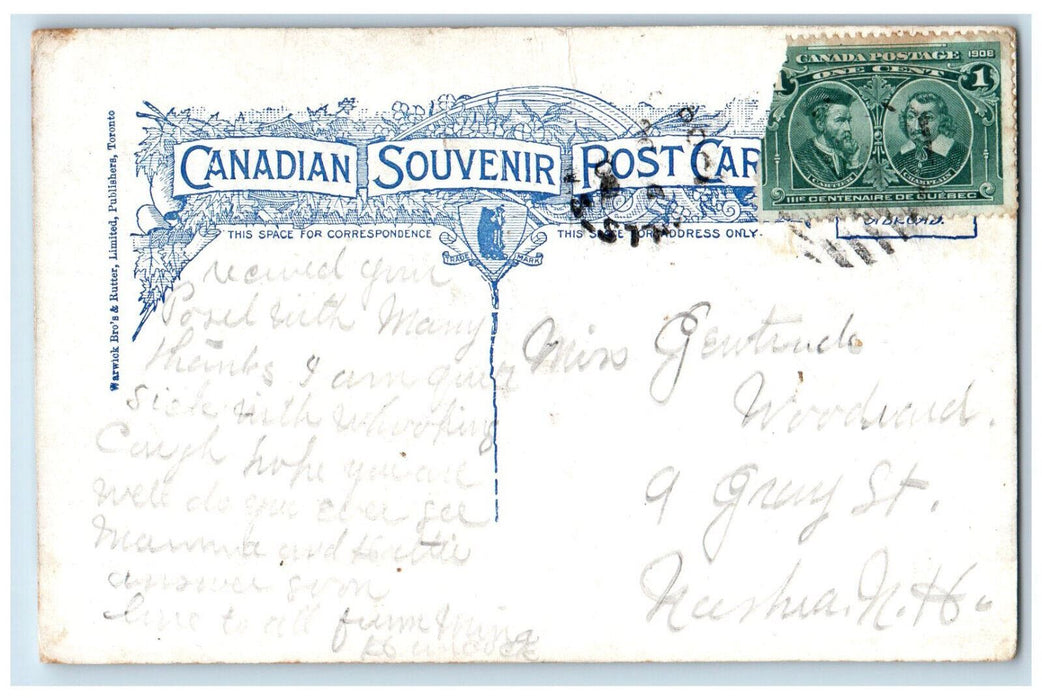 CANADA POSTAGE 1908
ONE CENT
1 1
CARTIER CHAMPLAIN
IIIE CENTENAIRE DE QUÉBEC
CANADIAN SOUVENIR POST CAR
THIS SPACE FOR CORRESPONDENCE
THIS SPACE FOR ADDRESS ONLY.
TRADE MARK
Warwick Bro's & Rutter, Limited, Publishers, Toronto
recived your
Posel with Many
thanks I am quit
sick with whooking
Caugh hope you are
well do you ever see
Mamma and Hattie
answer soon
love to all from Mina
Miss Gertrude
Woodward.
9 Gray St.
Nashua. N. H.